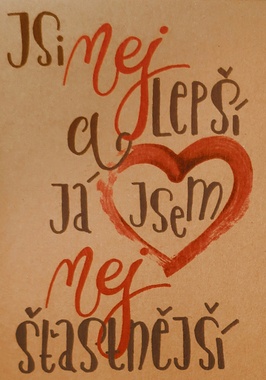 Jsi nej
lepší
a
já jsem
nej
šťastnější